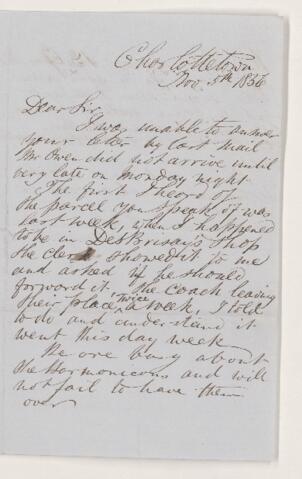 Charlottetown
Nov. 5th 1856
Dear Sir
I was unable to answer
your letter by last mail
Mr Owen did not arrive until
very late on monday night
The first I heard of
the parcel you speak of was
last week, when I happened
to be in DesBrisay's Shop
the clerk showed it to me
and asked if he should
forward it. The coach leaving
their place twice a week, I told
to do and understand it
went this day week
He are busy about
the Harmonicons and will
not fail to have them
over